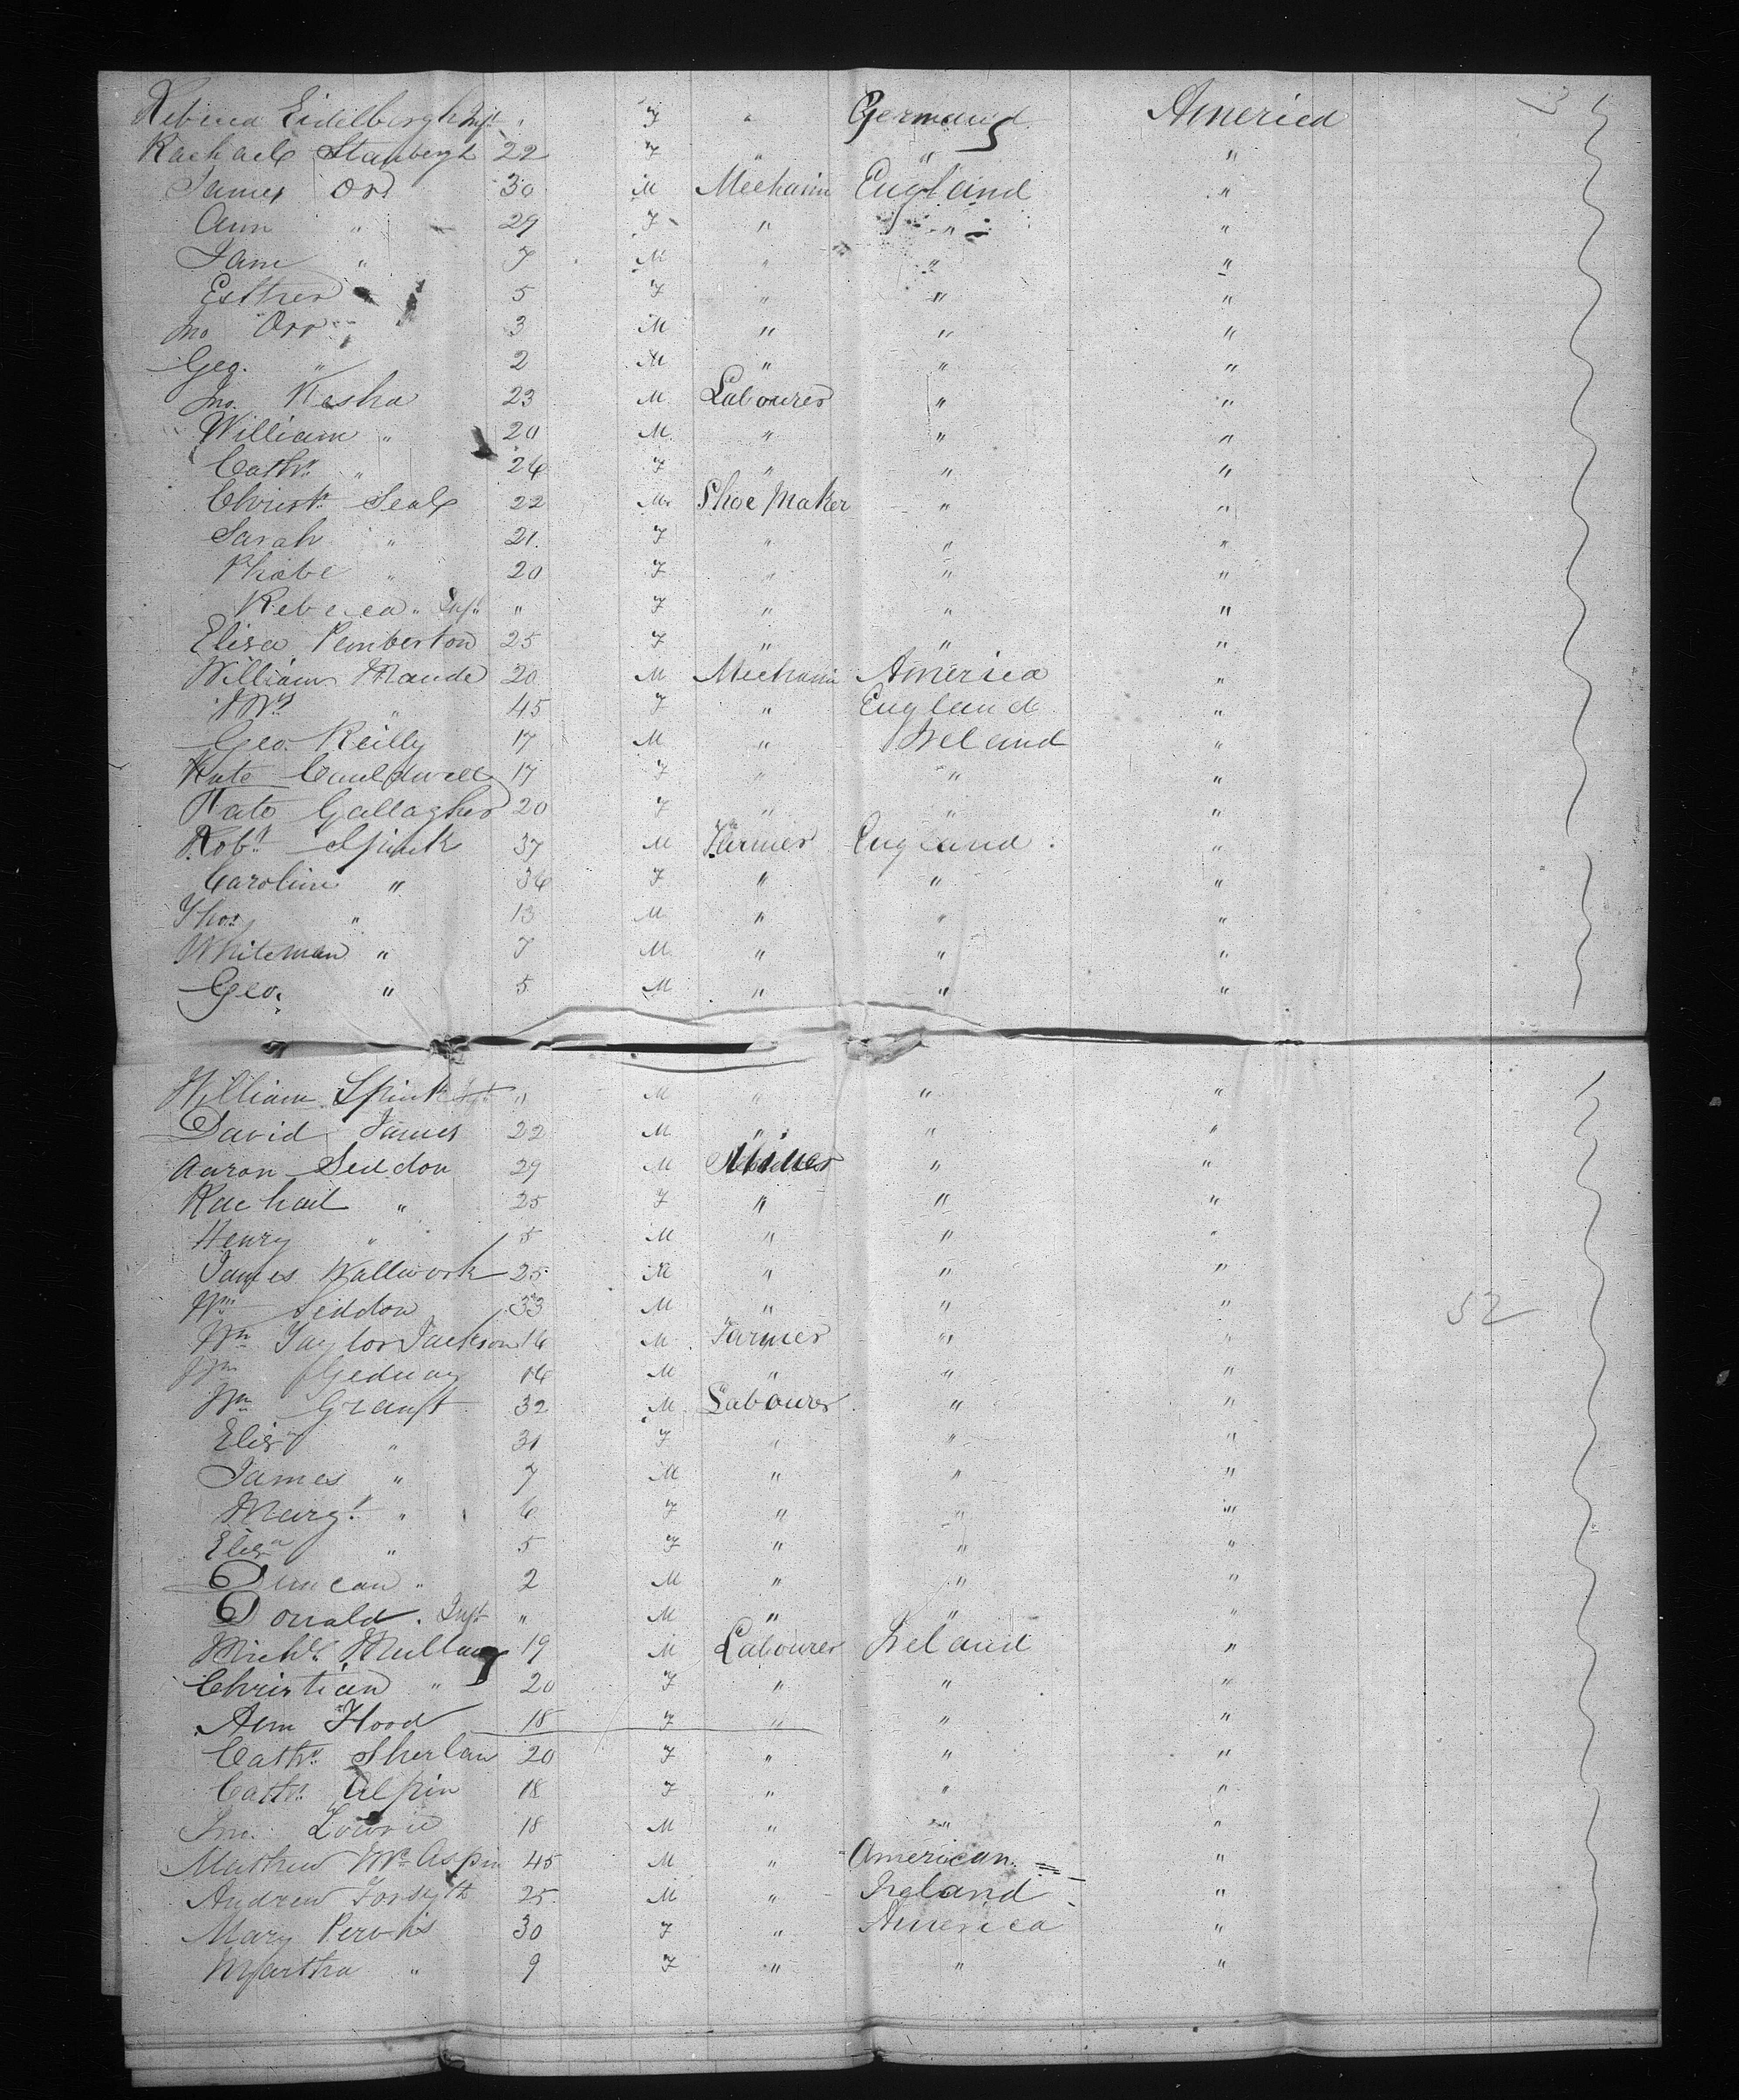 Rebecca Eidelbergh Inft " F " Germany America
Rachael Stanbergh 22 F " " "
James Orr 30 M Mechanic England "
Ann " 29 F " " "
Jam " 7 M " " "
Esther " 5 F " " "
Jno Orr 3 M " " "
Geo. " 2 M " " "
Jno. Kesha 23 M Labourer " "
William " 20 M " " "
Cathe " 26 F " " "
Christr Seal 22 M Shoe Maker " "
Sarah " 21 F " " "
Phoebe " 20 F " " "
Rebecca " Inft " F " " "
Elisa Pemberton 25 F " " "
William Maude 20 M Mechanic America "
Mrs " 45 F " England "
Geo. Reilly 17 M " Ireland "
Kate Cauldwell 17 F " " "
Kate Gallagher 20 F " " "
Robt Spink 37 M Farmer England "
Caroline " 36 F " " "
Thos " 13 M " " "
Whiteman " 7 M " " "
Geo. " 5 M " " "
William Spink Inft " M " " "
David James 22 M " " "
Aaron Seddon 29 M Miner " "
Rachail " 25 F " " "
Henry " 5 M " " "
James Wallwork 25 M " " "
Wm Seddon 33 M " " "
Wm Taylor Jackson 16 M Farmer " "
Wm 16 M " " "
Wm Grant 32 M Labourer " "
Eliza " 31 F " " "
James " 7 M " " "
Margt " 6 F " " "
Eliza " 5 F " " "
Duncan " 2 M " " "
Donald . Inft " M " " "
Michl Mullan 19 M Labourer Ireland "
Christian " 20 F " " "
Ann Flood 18 F " " "
Cathe Sherlan 20 F " " "
Cathe Alpin 18 F " " "
Jno. Lowrie 18 M " " "
Mathew McAspin 45 M " American "
Andrew Forsyth 25 M " Ireland "
Mary 30 F " America "
Martha " 9 F " " "
52